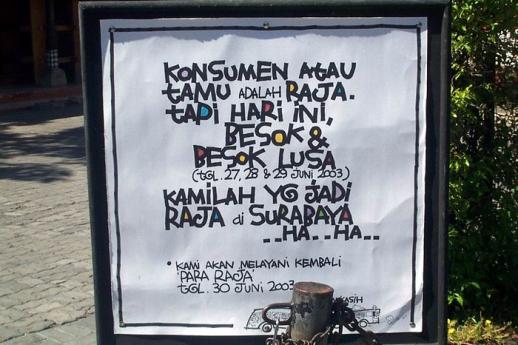 KONSUMEN ATAU
TAMU ADALAH RAJA.
TAPI HARI INI,
BESOK &
BESOK LUSA
(TGL. 27, 28 & 29 JUNI 2003)
KAMILAH YG JADI
RAJA di SURABAYA
..HA..HA..
• KAMI AKAN MELAYANI KEMBALI
"PARA RAJA"
TGL. 30 JUNI 2003